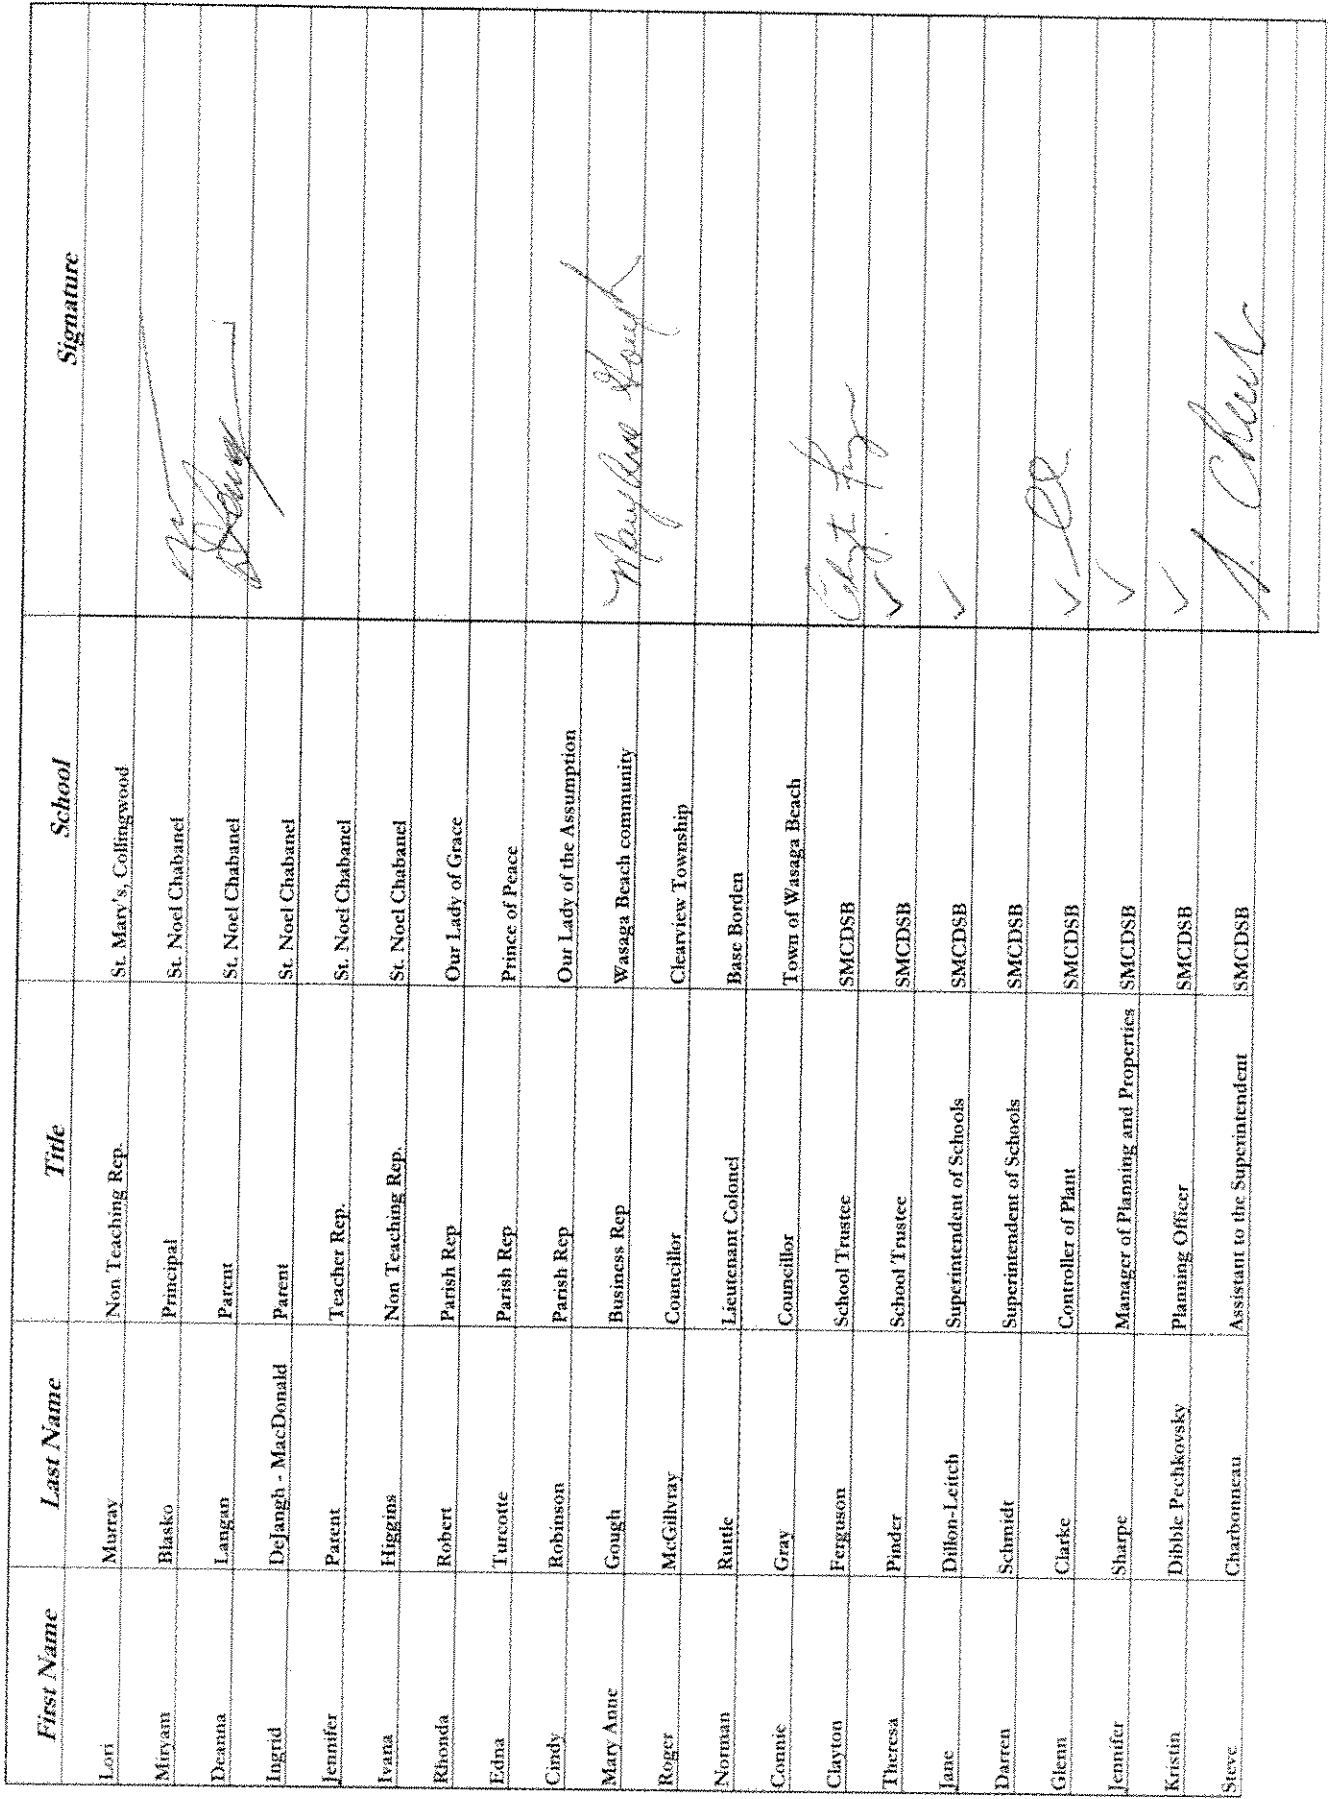 First Name Last Name Title School Signature
Lori Murray Non Teaching Rep. St. Mary's, Collingwood
Miryam Blasko Principal St. Noel Chabanel
Deanna Langan Parent St. Noel Chabanel
Ingrid DeJangh - MacDonald Parent St. Noel Chabanel
Jennifer Parent Teacher Rep. St. Noel Chabanel
Ivana Higgins Non Teaching Rep. St. Noel Chabanel
Rhonda Robert Parish Rep Our Lady of Grace
Edna Turcotte Parish Rep Prince of Peace
Cindy Robinson Parish Rep Our Lady of the Assumption
Mary Anne Gough Business Rep Wasaga Beach community Mary Anne Gough
Roger McGillvray Councillor Clearview Township
Norman Ruttle Lieutenant Colonel Base Borden
Connie Gray Councillor Town of Wasaga Beach
Clayton Ferguson School Trustee SMCDSB
Theresa Pinder School Trustee SMCDSB ✓
Jane Dillon-Leitch Superintendent of Schools SMCDSB ✓
Darren Schmidt Superintendent of Schools SMCDSB
Glenn Clarke Controller of Plant SMCDSB ✓
Jennifer Sharpe Manager of Planning and Properties SMCDSB ✓
Kristin Dibble Pechkovsky Planning Officer SMCDSB ✓
Steve Charbonneau Assistant to the Superintendent SMCDSB